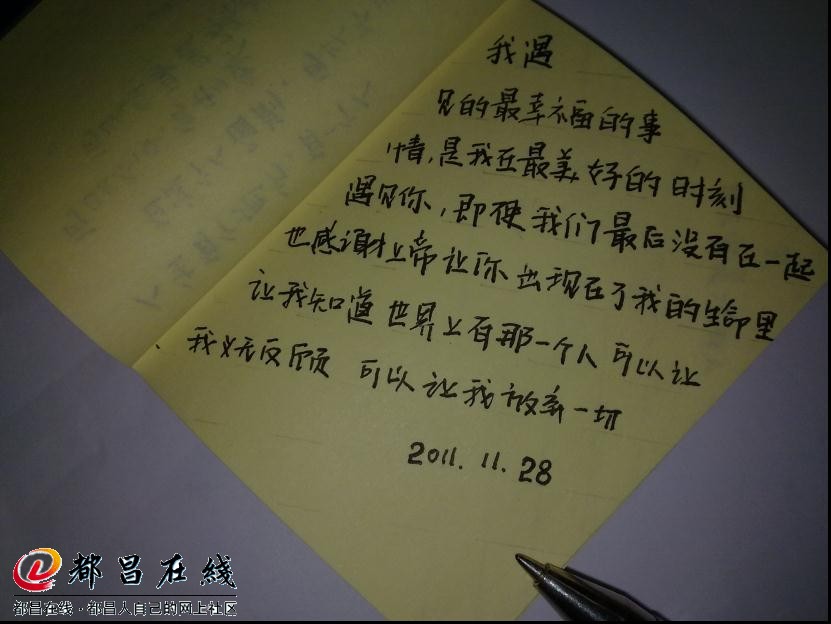 我遇
见的最幸福的事
情,是我在最美好的时刻
遇见你,即使我们最后没有在一起
也感谢上帝让你出现在了我的生命里
让我知道世界上有那一个人可以让
我义无反顾 可以让我放弃一切
2011.11.28
都昌在線
都昌在线·都昌人自己的网上社区